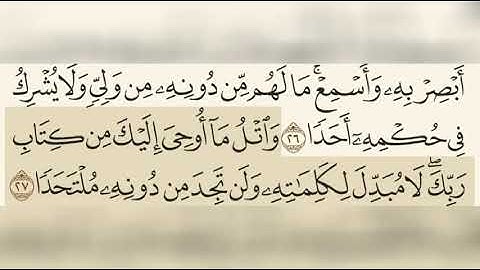 أَبۡصِرۡ بِهِۦ وَأَسۡمِعۡۚ مَا لَهُم مِّن دُونِهِۦ مِن وَلِيّٖ وَلَا يُشۡرِكُ
فِي حُكۡمِهِۦٓ أَحَدٗا ٢٦ وَٱتۡلُ مَآ أُوحِيَ إِلَيۡكَ مِن كِتَابِ
رَبِّكَۖ لَا مُبَدِّلَ لِكَلِمَٰتِهِۦ وَلَن تَجِدَ مِن دُونِهِۦ مُلۡتَحَدٗا ٢٧